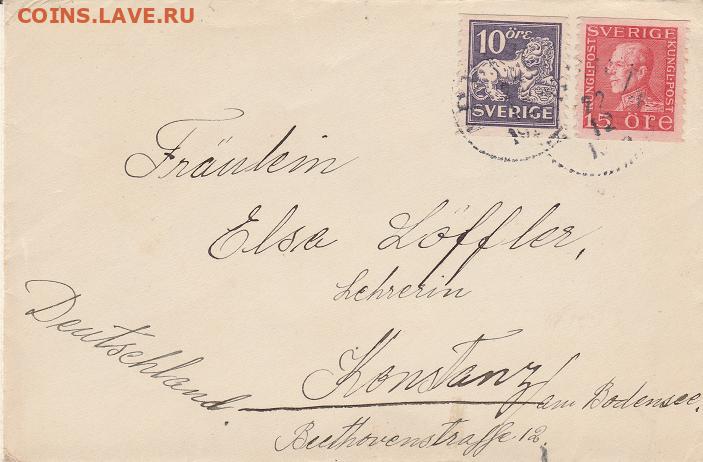 COINS.LAVE.RU
10 öre
SVERIGE
SVERIGE
KUNGL·POST
15 öre
Fräulein
Elsa Löffler,
Lehrerin
Konstanz am Bodensee.
Beethovenstraße 12.
Deutschland.